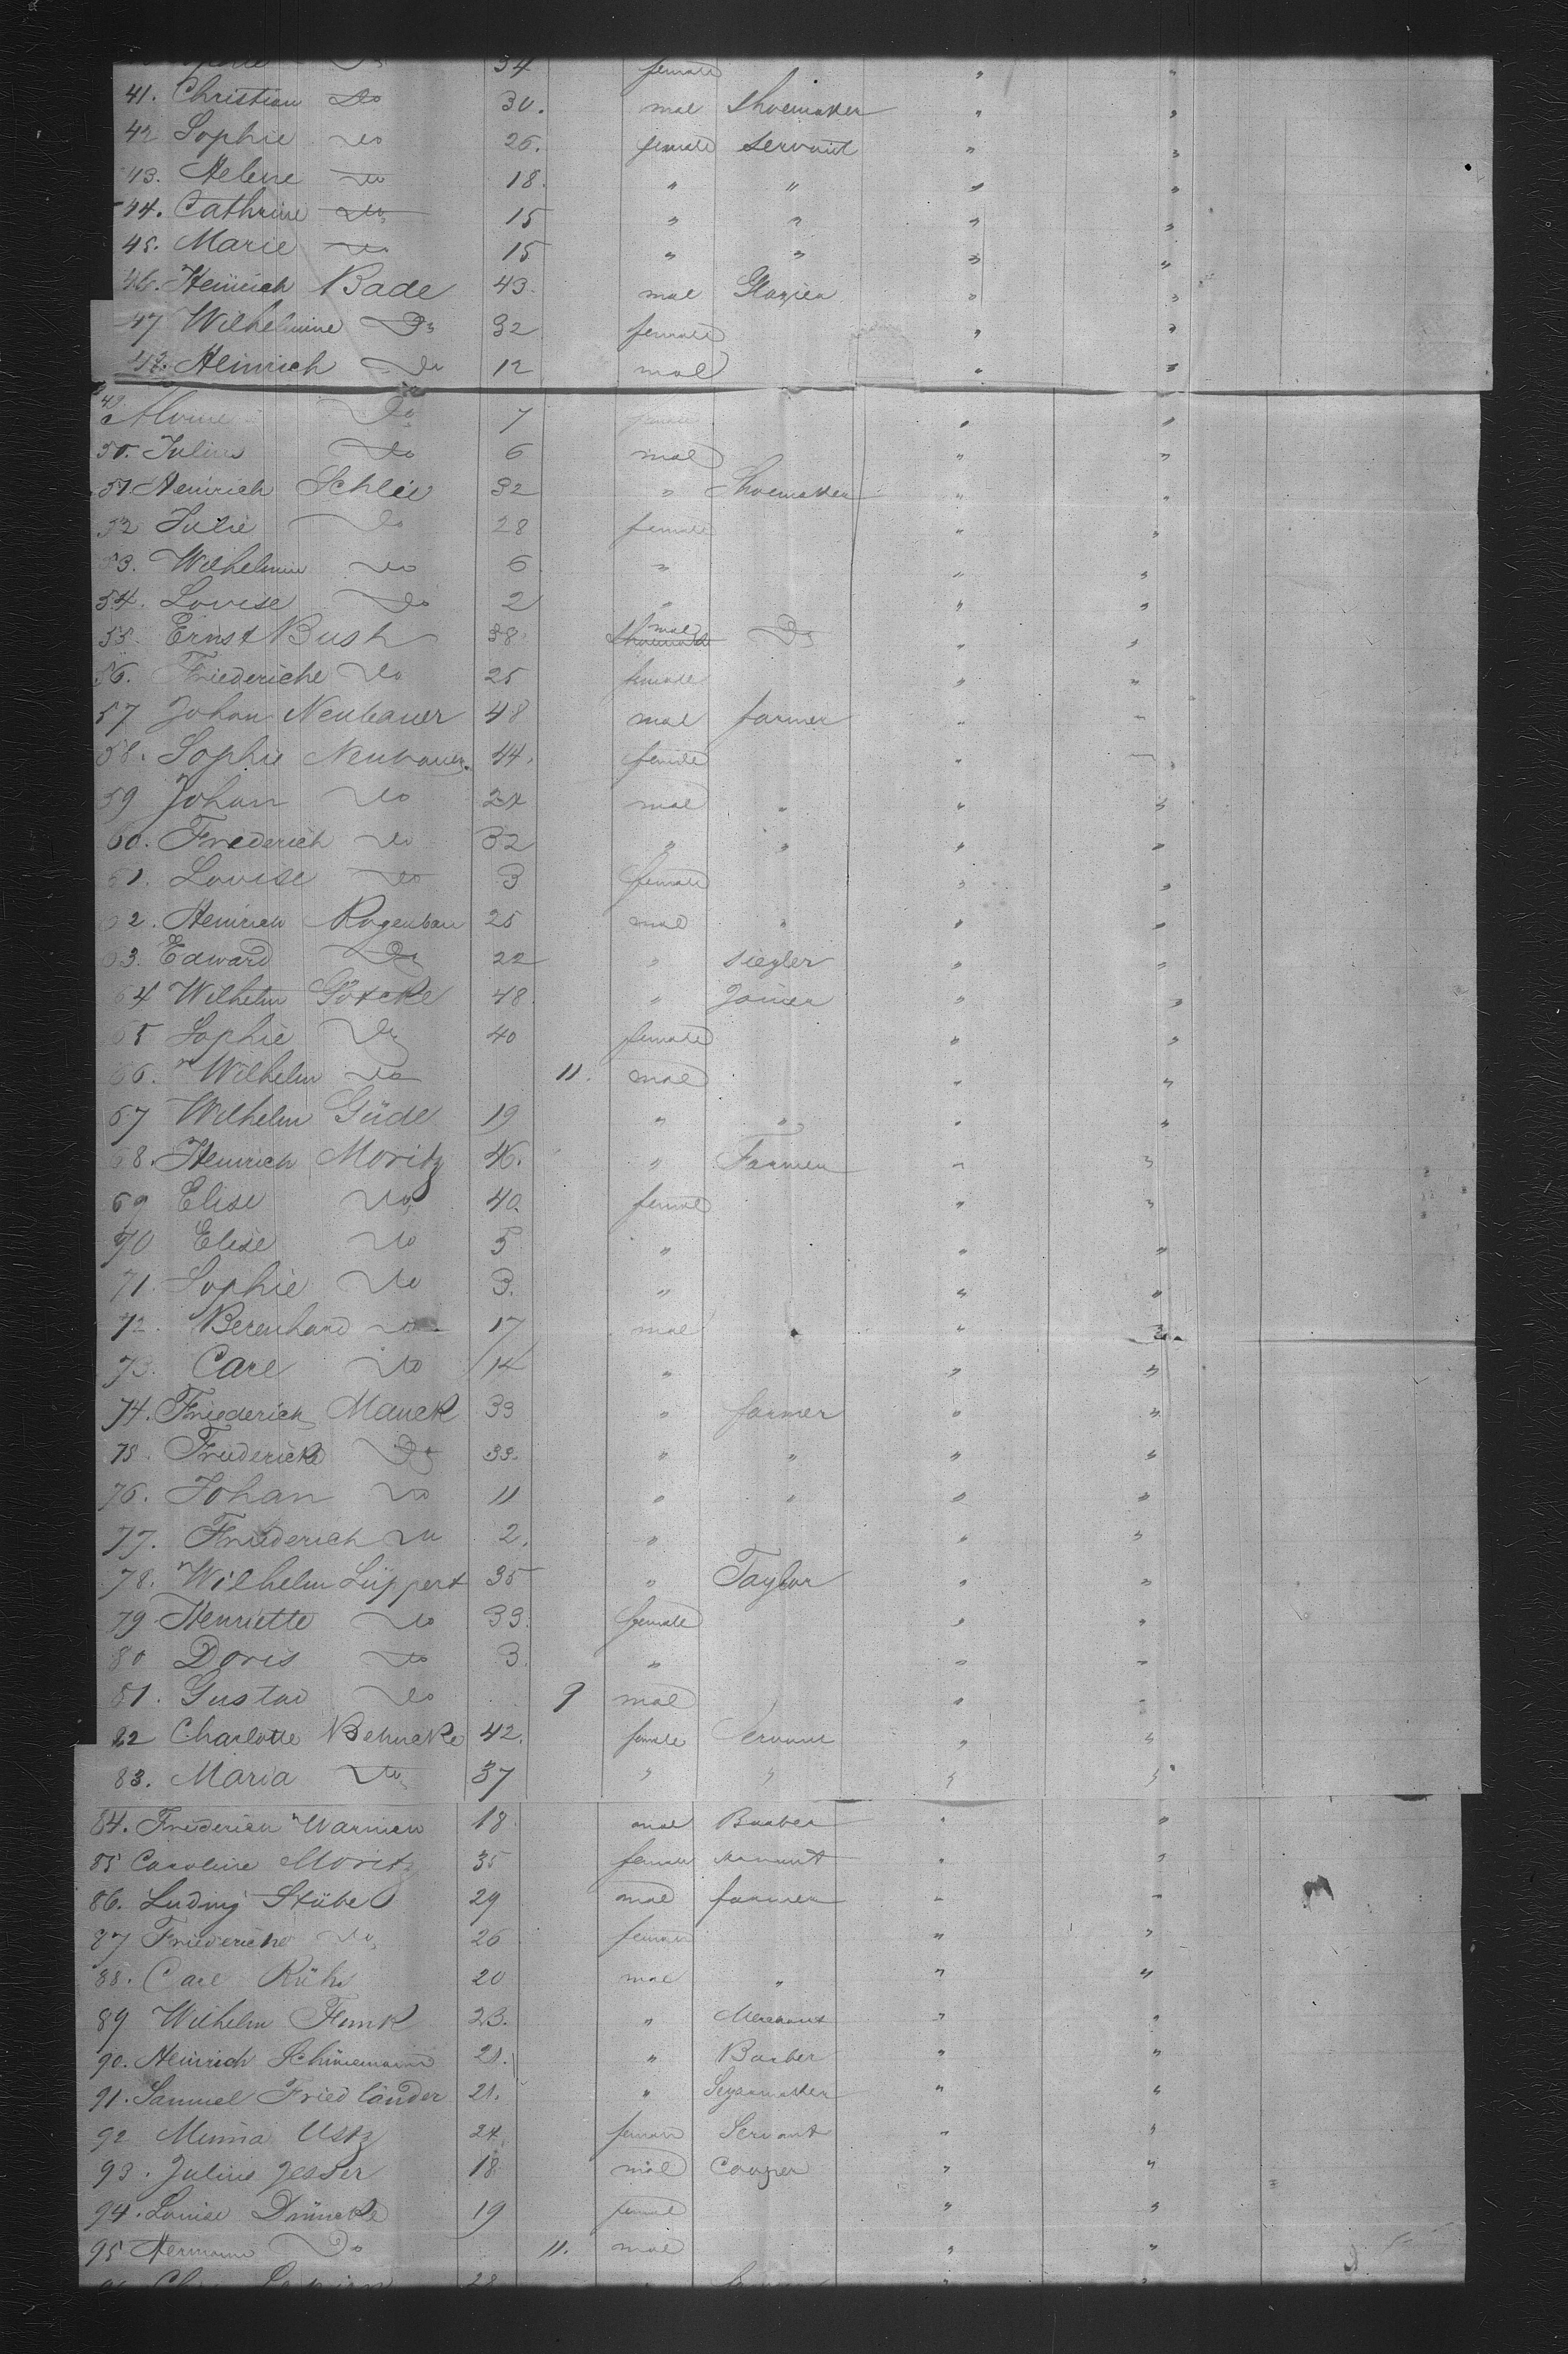 34 female " "
41. Christian Do 30. mal Shoemaker " "
42 Sophie Do 26. female servant " "
43. Helene Do 18. " " " "
44. Cathrine Do 15 " " " "
45. Marie Do 15 " " " "
46. Heinrich Bade 43. mal Glazier " "
47 Wilhelmine Do 32 female " "
48. Heinrich Do 12 mal " "
49. Do 7 " "
50. Julius Do 6 mal " "
51. Heinrich Schlie 32 " Shoemaker " "
52 Julie Do 28 female " "
53. Wilhelmin Do 6 " " "
54. Lovise Do 2 " " "
55. Ernst Bush 38 mal Do " "
56. Friederiche Do 25 female " "
57 Johan Neubauer 48 mal farmer " "
58. Sophie Neubauer 44. female "
59 Johan Do 24 mal " " "
60. Frederich Do 32 " " " "
61. Lovise Do 3 female " "
62. Heinrich Rogenbau 25 mal " " "
63. Edward Do 22 " siegler " "
64 Wilhelm Götcke 48 " Joiner " "
65 Sophie Do 40 female " "
66. Wilhelm Do 11. mal " "
67 Wilhelm Güde 19 " " " "
68. Heinrich Moritz 46. " Farmer " "
69 Elise Do 40. femal " "
70 Elise Do 5 " " "
71. Sophie Do 3. " " "
72. Berenhard Do 17 mal " " "
73. Carl Do 14 " " "
74. Friederich Mauck 33 " farmer " "
75. Friedericke Do 33. " " " "
76. Johan Do 11 " " " "
77. Friederich Do 2. " " "
78. Wilhelm Lüppert 35 " Taylor " "
79 Henriette Do 33. female " "
80 Doris Do 3 " " "
81. Gustav Do 9 mal " "
82 Charlotte Behncke 42. female Servant " "
83. Maria Do 37 " " " "
84. Friederich 18 mal Barber " "
85 Caroline Moritz 35 female servant " "
86. Ludwig Stübe 29 mal farmer " "
87 Friederiche Do 26 female " "
88. Carl 20 mal " " "
89 Wilhelm Funk 23. " Merchant " "
90. Heinrich Schünemann 21. " Barber " "
91. Samuel Friedländer 21. " " "
92 Minna 24 female Servant " "
93. Julius Jesser 18 mal Cooper " "
94. Louise Dünncke 19 femal " "
95 Hermann Do 11. mal " "
28